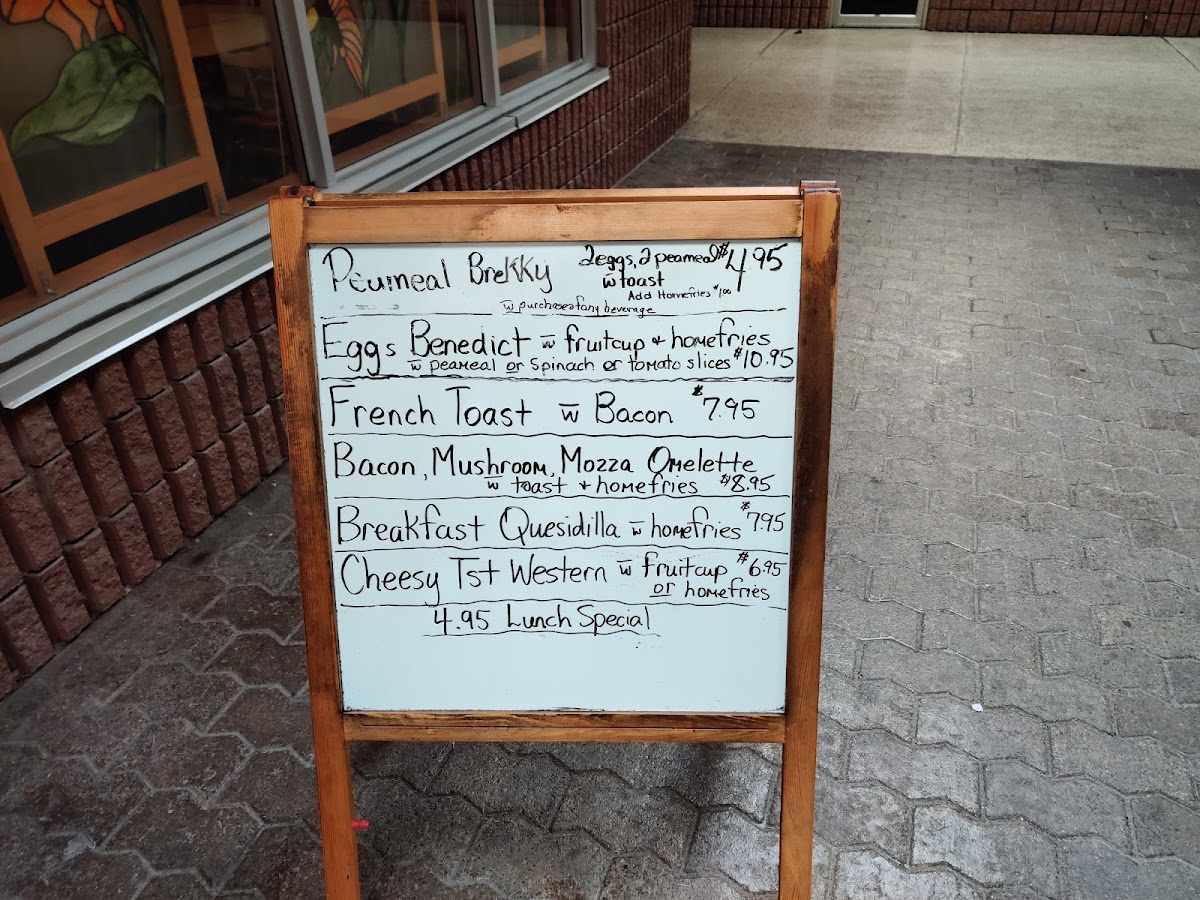 Peameal Brekky 2eggs, 2 peameal $4.95
w̄ toast
Add Homefries $1.00
w̄ purchase of any beverage
Eggs Benedict w̄ fruitcup + homefries
w̄ peameal or spinach or tomato slices $10.95
French Toast w̄ Bacon $7.95
Bacon, Mushroom, Mozza Omelette
w toast + homefries $8.95
Breakfast Quesidilla w̄ homefries $7.95
Cheesy Tst Western w̄ fruitcup $6.95
or homefries
4.95 Lunch Special